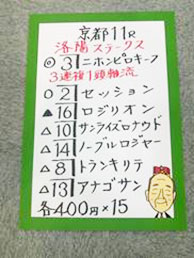 京都11R
洛陽ステークス
◎ 3 ニホンピロキーフ
3連複1頭軸流
○ 2 セッション
▲ 16 ロジリオン
△ 10 サンライズロナウド
△ 14 ノーブルロジャー
△ 8 トランキリテ
△ 13 アナゴサン
各400円×15